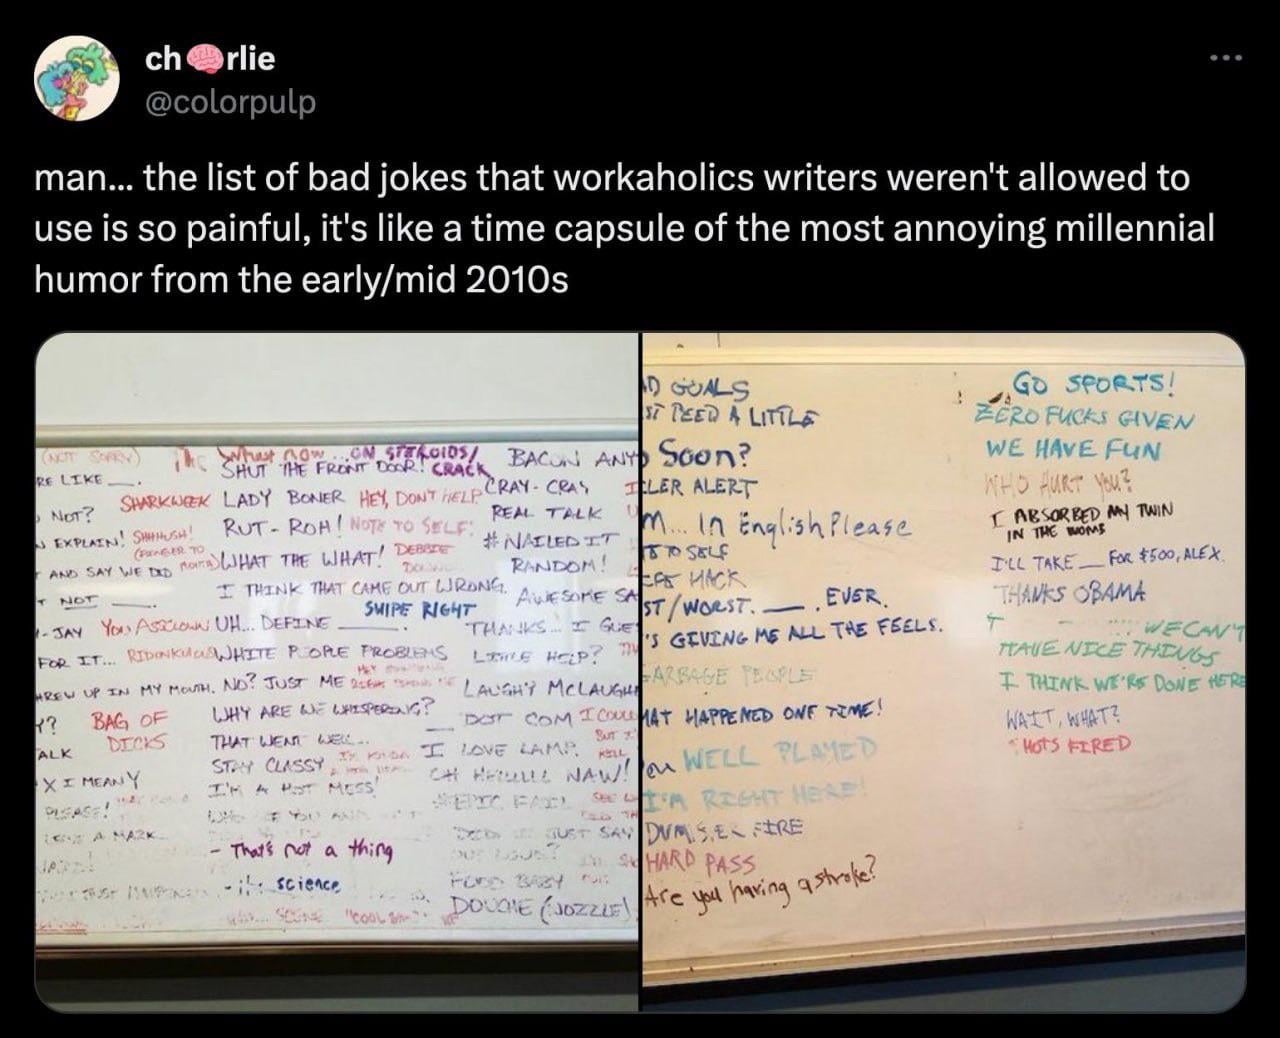 ch🧠rlie
@colorpulp
man... the list of bad jokes that workaholics writers weren't allowed to
use is so painful, it's like a time capsule of the most annoying millennial
humor from the early/mid 2010s
(NOT SORRY)
RE LIKE ___.
NOT?
EXPLAIN!
AND SAY WE DID
NOT ___.
- JAY
FOR IT...
HREW UP IN MY MOUTH.
Y?
ALK
X I MEAN Y
PLEASE!
SHARKWEEK
SHHHUSH!
(FINGER TO
YOU ASSCLOWN
RIDONKULOUS
BAG OF
DICKS
What now... ON STEROIDS/
SHUT THE FRONT DOOR! CRACK
LADY BONER HEY, DON'T HELP
RUT-ROH! NOTE TO SELF:
WHAT THE WHAT! DEBBIE
I THINK THAT CAME OUT WRONG.
SWIPE RIGHT
UH... DEFINE ___.
WHITE PEOPLE PROBLEMS
NO? JUST ME
WHY ARE WE WHISPERING?
THAT WENT WELL...
STAY CLASSY
I'M A HOT MESS!
- That's not a thing
science
SCENE
BACON ANY
CRAY-CRAY
REAL TALK
#NAILED IT
RANDOM!
AWESOME SA
THANKS... I GUE
LITTLE HELP?
LAUGHY MCLAUGH
___ DOT COM I COUL
I LOVE LAMP.
OH HELLLLL NAW!
EPIC FAIL
JUST SAY
FOOD BABY
DOUCHE (NOZZLE)
D GOALS
ST PEED A LITTLE
Soon?
ILER ALERT
M... In English Please
TO SELF
HACK
ST/WORST. ___. EVER.
'S GIVING ME ALL THE FEELS.
GARBAGE PEOPLE
HAT HAPPENED ONE TIME!
WELL PLAYED
I'M RIGHT HERE!
DUMPSTER FIRE
HARD PASS
Are you having a stroke?
GO SPORTS!
ZERO FUCKS GIVEN
WE HAVE FUN
WHO HURT YOU?
I ABSORBED MY TWIN
IN THE WOMB
I'LL TAKE ___ FOR $500, ALEX.
THANKS OBAMA
WE CAN'T
HAVE NICE THINGS
I THINK WE'RE DONE HERE
WAIT, WHAT?
SHOTS FIRED